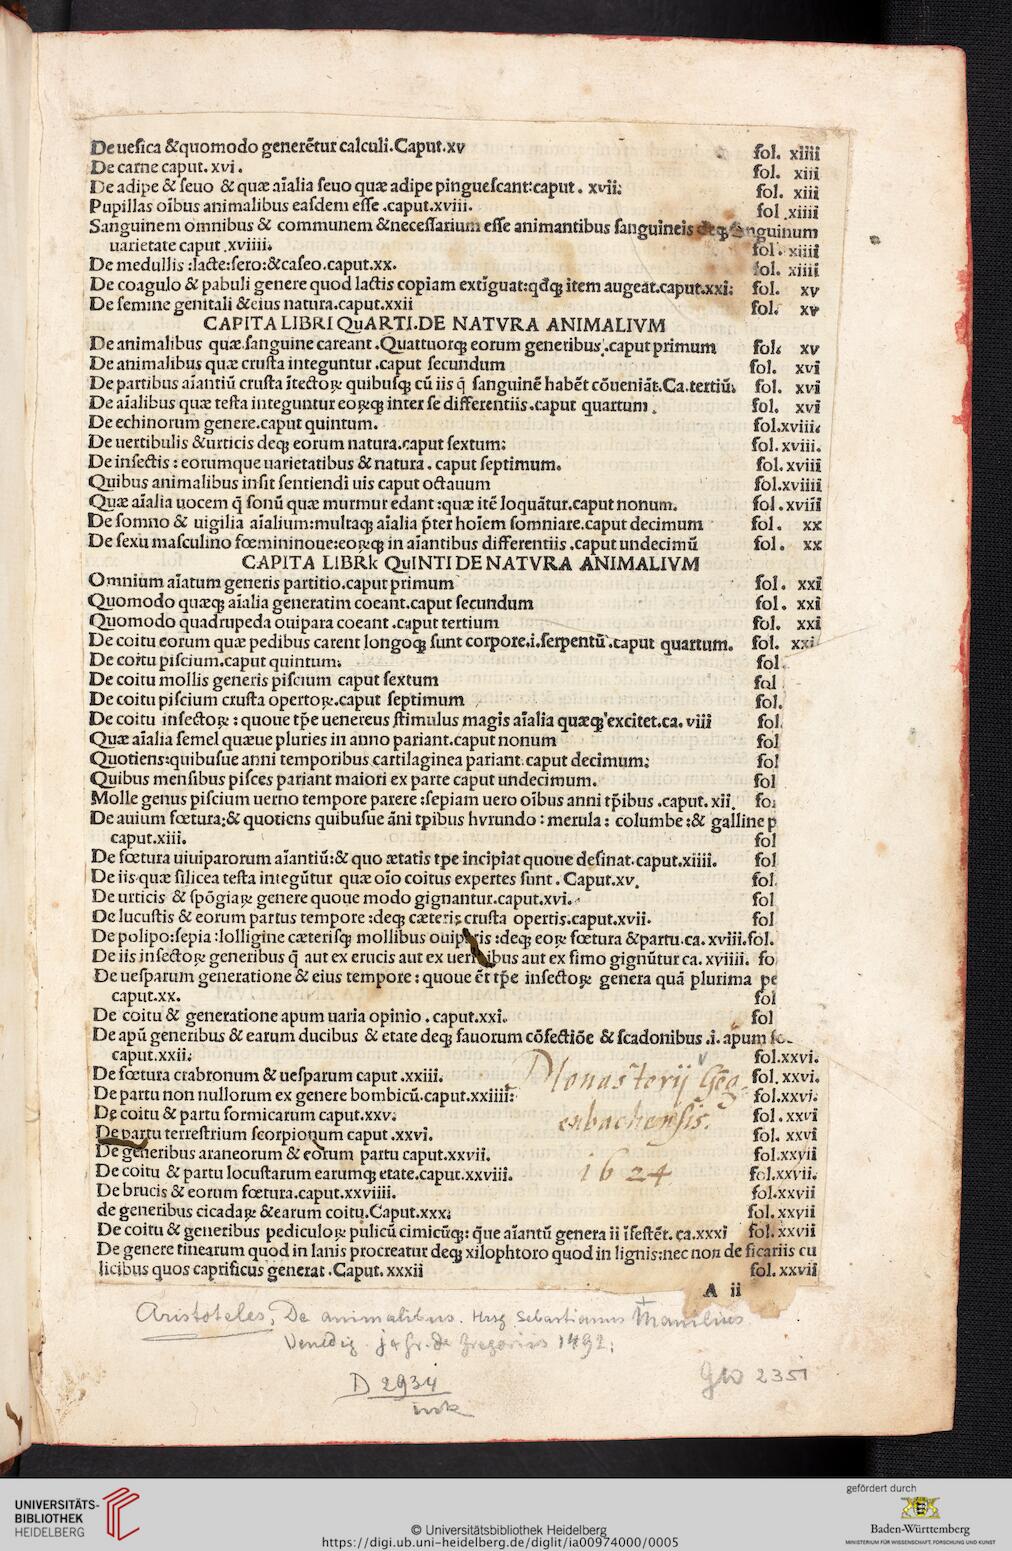 De uesica &quomodo generẽtur calculi.Caput.xv fol. xiiii
De carne caput. xvi. fol. xiii
De adipe & seuo & quæ aĩalia seuo quæ adipe pinguescant:caput. xvii: fol. xiii
Pupillas oĩbus animalibus easdem esse .caput.xviii. fol .xiiii
Sanguinem omnibus & communem &necessarium esse animantibus sanguineis deqꝫ sanguinum
uarietate caput .xviiii. fol. xiiii
De medullis :lacte:sero:&caseo.caput.xx. fol. xiiii
De coagulo & pabuli genere quod lactis copiam extĩguat:qđqꝫ item augeat.caput.xxi: fol. xv
De semine genitali &eius natura.caput.xxii fol. xv
CAPITA LIBRI QuARTI.DE NATVRA ANIMALIVM
De animalibus quæ sanguine careant .Quattuorqꝫ eorum generibus .caput primum fol. xv
De animalibus quæ crusta integuntur .caput secundum fol. xvi
De partibus aĩantiũ crusta ĩtectoꝝ quibusqꝫ cũ iis q̃ sanguinẽ habẽt cõueniãt.Ca.tertiũ. fol. xvi
De aĩalibus quæ testa integuntur eoꝝqꝫ inter se differentiis .caput quartum . fol. xvi
De echinorum genere.caput quintum. fol.xviii.
De uertibulis &urticis deqꝫ eorum natura.caput sextum: fol.xviii.
De insectis : eorumque uarietatibus & natura . caput septimum. fol.xviii
Quibus animalibus insit sentiendi uis caput octauum fol.xviiii
Quæ aĩalia uocem q̃ sonũ quæ murmur edant :quæ itẽ loquãtur.caput nonum. fol .xviii
De somno & uigilia aĩalium:multaqꝫ aĩalia p̃ter hoĩem somniare.caput decimum fol . xx
De sexu masculino fœmininoue:eoꝝqꝫ in aĩantibus differentiis .caput undecimũ fol . xx
CAPITA LIBRk QuINTI DE NATVRA ANIMALIVM
Omnium aĩatum generis partitio.caput primum fol. xxi
Quomodo quæqꝫ aĩalia generatim coeant.caput secundum fol . xxi
Quomodo quadrupeda ouipara coeant .caput tertium fol. xxi
De coitu eorum quæ pedibus carent longoqꝫ sunt corpore.i.serpentũ .caput quartum. fol. xxi
De coitu piscium.caput quintum: fol
De coitu mollis generis piscium caput sextum fol
De coitu piscium crusta opertoꝝ.caput septimum fol.
De coitu insectoꝝ : quoue tp̃e uenereus stimulus magis aĩalia quæqꝫ excitet.ca. viii fol.
Quæ aĩalia semel quæue pluries in anno pariant.caput nonum fol
Quotiens:quibusue anni temporibus cartilaginea pariant.caput decimum: fol
Quibus mensibus pisces pariant maiori ex parte caput undecimum. fol
Molle genus piscium uerno tempore parere :sepiam uero oĩbus anni tp̃ibus .caput. xii.
De auium fœtura:& quotiens quibusue ãni tpibus hvrundo : merula : columbe :& galline p
caput.xiii. fol
De fœtura uiuiparorum aĩantiũ:& quo ætatis tpe incipiat quoue desinat.caput.xiiii. fol
De iis quæ silicea testa integũtur quæ oĩo coitus expertes sunt . Caput.xv. fol.
De urticis & spõgiaꝝ genere quoue modo gignantur.caput.xvi. fol
De lucustis & eorum partus tempore :deqꝫ cæteris crusta opertis.caput.xvii. fol
De polipo:sepia :lolligine cæterisqꝫ mollibus ouiparis :deqꝫ eoꝝ fœtura &partu.ca. xviii.fol.
De iis insectoꝝ generibus q̃ aut ex erucis aut ex uermibus aut ex fimo gignũtur ca. xviiii. fo
De uesparum generatione & eius tempore : quoue ẽt tp̃e insectoꝝ genera quã plurima pe
caput.xx. fol
De coitu & generatione apum uaria opinio . caput.xxi. fol
De apũ generibus & earum ducibus & etate deqꝫ fauorum cõfectiõe & scadonibus .i. apum
caput.xxii: fol.xxvi.
De fœtura crabronum & uesparum caput .xxiii. fol. xxvi.
De partu non nullorum ex genere bombicũ.caput.xxiiii: fol.xxvi.
De coitu & partu formicarum caput.xxv. fol . xxvi
De partu terrestrium scorpionum caput .xxvi. fol. xxvi
De generibus araneorum & eorum partu caput.xxvii. fol.xxvii
De coitu & partu locustarum earumqꝫ etate.caput.xxviii. fol.xxvii.
De brucis & eorum fœtura.caput.xxviiii. fol.xxvii
de generibus cicadaꝝ &earum coitu.Caput.xxx: fol. xxvii
De coitu & generibus pediculoꝝ pulicũ cimicũqꝫ: q̃ue aĩantũ genera ii ĩfestẽt. ca.xxxi fol. xxvii
De genere tinearum quod in lanis procreatur deqꝫ xilophtoro quod in lignis:nec non de ficariis cu
licibus quos caprificus generat .Caput. xxxii fol. xxvii
A ii
Monasterij Geng-
enbachensis.
1624
Aristoteles, De animalibus. Hrsg Sebastianus Manilius
Venedig. J & Gr. de Gregoriis 1492.
D 2934
ink
GW 2351
UNIVERSITÄTS-
BIBLIOTHEK
HEIDELBERG
© Universitätsbibliothek Heidelberg
https://digi.ub.uni-heidelberg.de/diglit/ia00974000/0005
gefördert durch
Baden-Württemberg
MINISTERIUM FÜR WISSENSCHAFT, FORSCHUNG UND KUNST